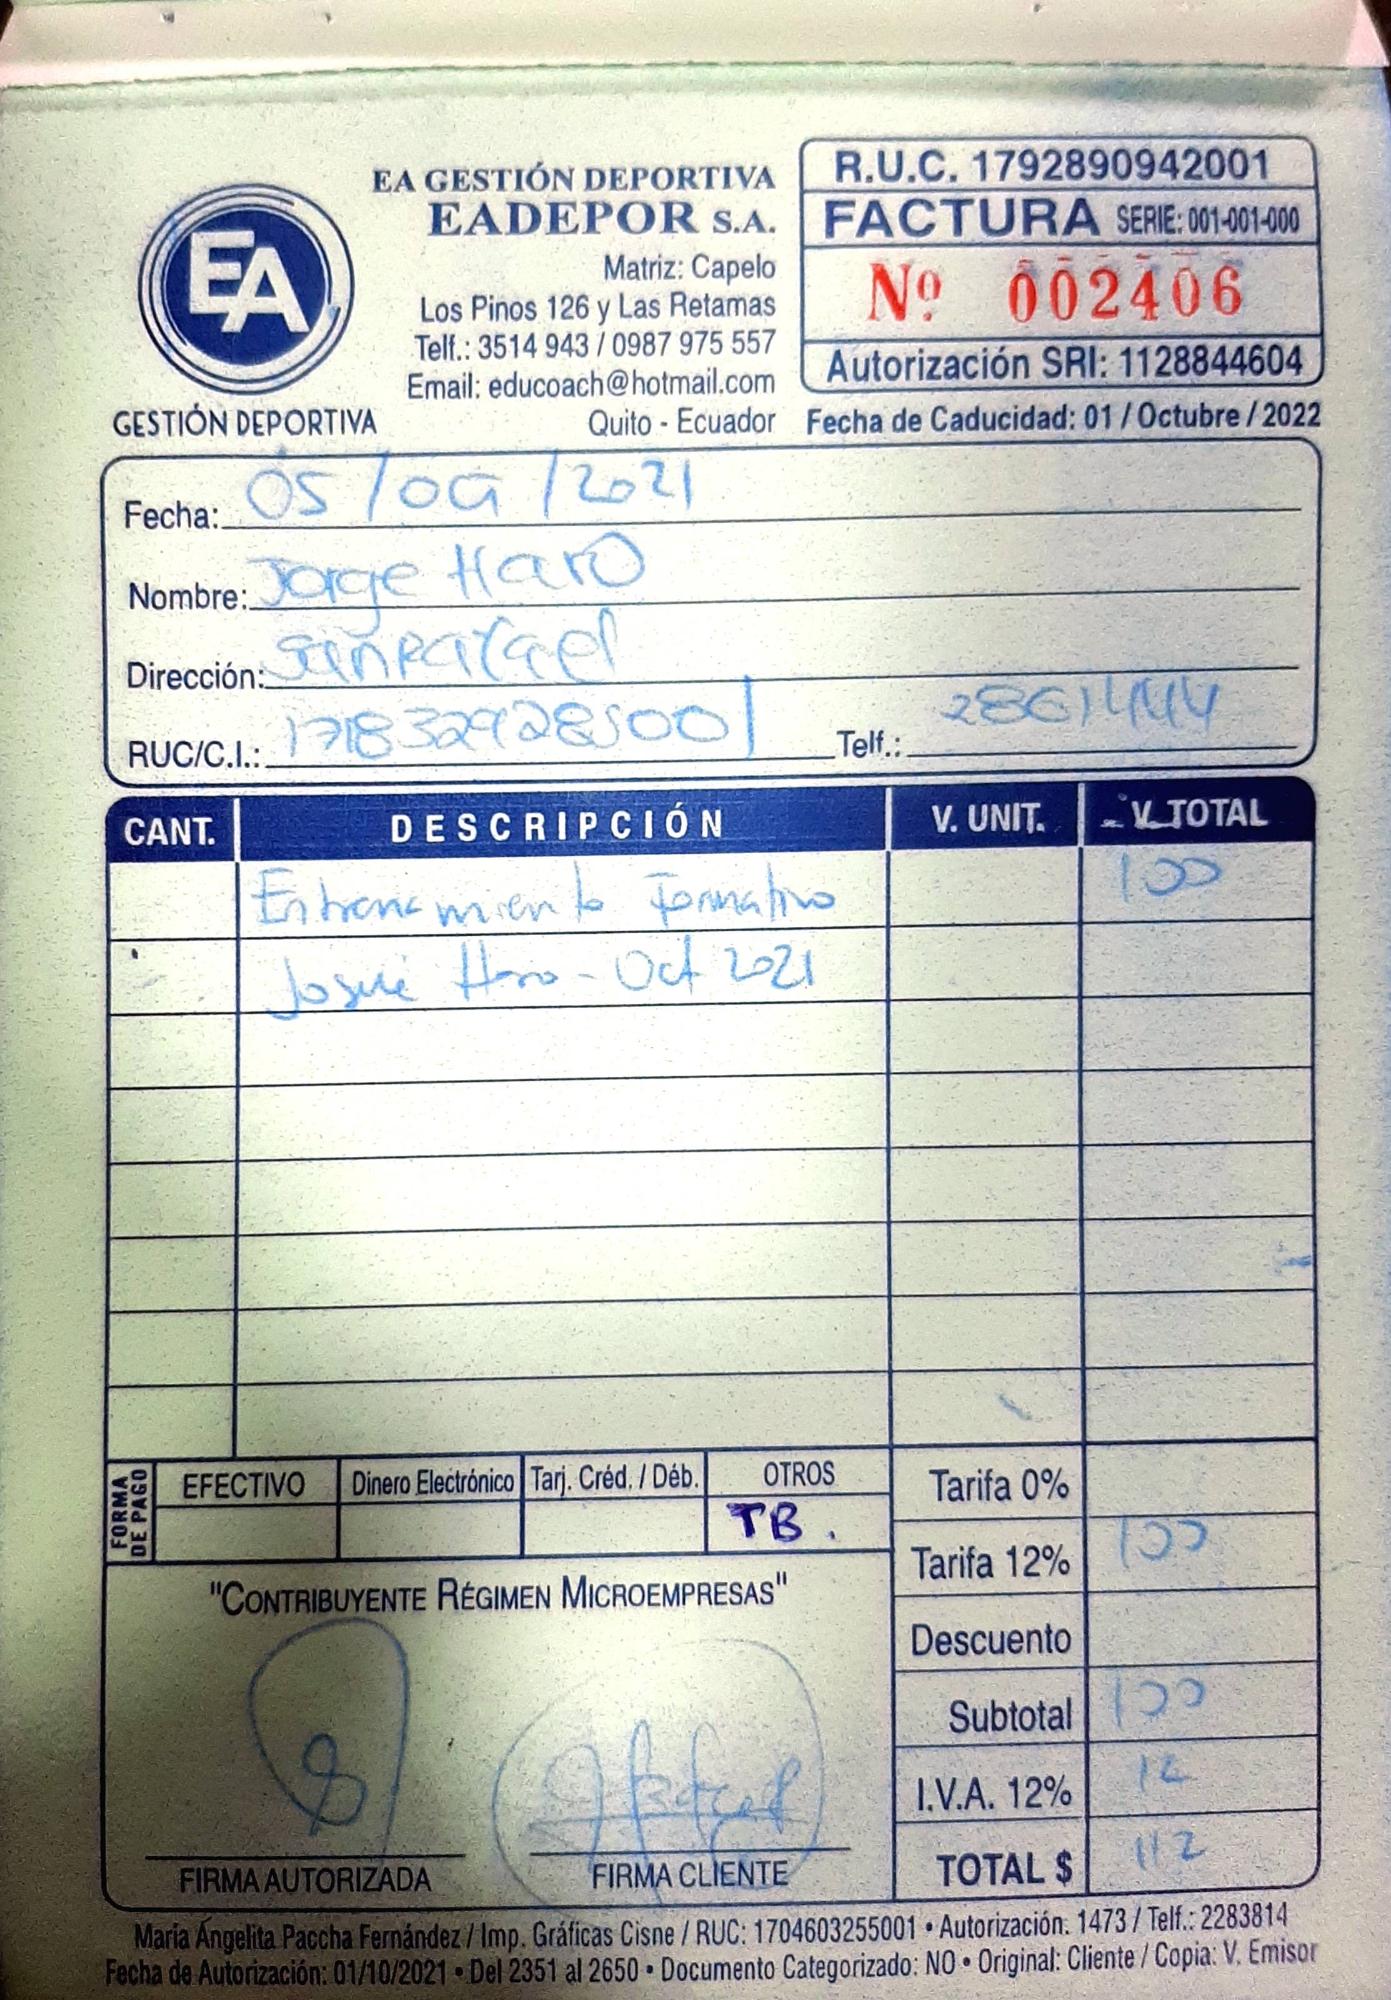 EA GESTIÓN DEPORTIVA
EADEPOR S.A.
Matriz: Capelo
Los Pinos 126 y Las Retamas
Telf.: 3514 943 / 0987 975 557
Email: educoach@hotmail.com
Quito - Ecuador
EA
GESTIÓN DEPORTIVA
R.U.C. 1792890942001
FACTURA SERIE: 001-001-000
Nº 002406
Autorización SRI: 1128844604
Fecha de Caducidad: 01 / Octubre / 2022
Fecha: 05 / / 2021
Nombre: Jorge Haro
Dirección: San Rafael
RUC/C.I.: Telf.:
CANT. DESCRIPCIÓN V. UNIT. V. TOTAL
Entrenamiento Formativo 100
Josué Haro - Oct 2021
FORMA DE PAGO
EFECTIVO Dinero Electrónico Tarj. Créd. / Déb. OTROS
TB.
Tarifa 0%
Tarifa 12% 100
Descuento
Subtotal 100
I.V.A. 12% 12
TOTAL $ 112
"CONTRIBUYENTE RÉGIMEN MICROEMPRESAS"
FIRMA AUTORIZADA FIRMA CLIENTE
María Ángelita Paccha Fernández / Imp. Gráficas Cisne / RUC: 1704603255001 • Autorización: 1473 / Telf.: 2283814
Fecha de Autorización: 01/10/2021 • Del 2351 al 2650 • Documento Categorizado: NO • Original: Cliente / Copia: V. Emisor